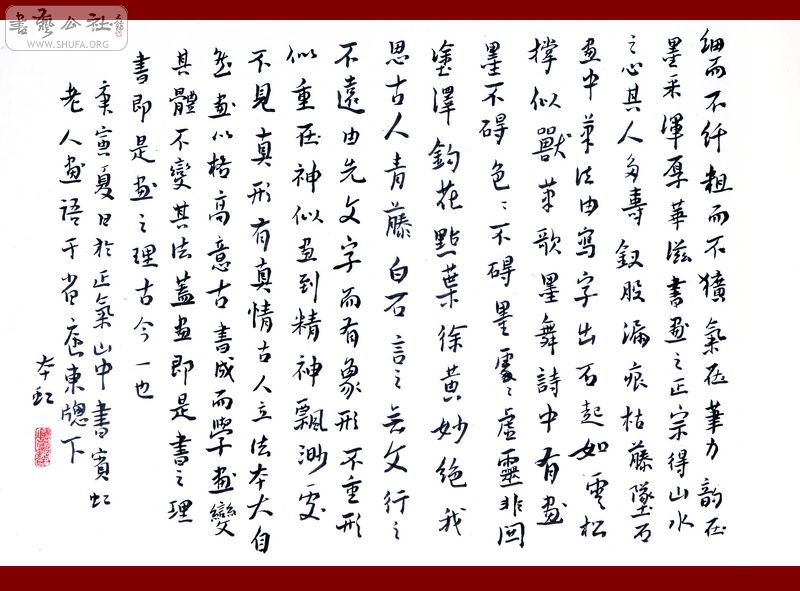 書藝公社
WWW.SHUFA.ORG
細而不纤粗而不獷氣在筆力韵在
墨采渾厚華滋書画之正宗得山水
之心其人多壽釵股漏痕枯藤墜石
画中筆法由寫字出石起如雲松
撑似獸筆歌墨舞詩中有画
墨不碍色〻不碍墨處〻虛靈非同
塗澤鈎花點葉徐黄妙絕我
思古人青藤白石言之無文行之
不遠由先文字而有象形不重形
似重在神似画到精神飄渺處
不見真形有真情古人立法本大自
然画以格高意古書成而學画變
其體不變其法蓋画即是書之理
書即是画之理古今一也
庚寅夏日於正氣山中書賓虹
老人画語于省庐東牕下
本虹